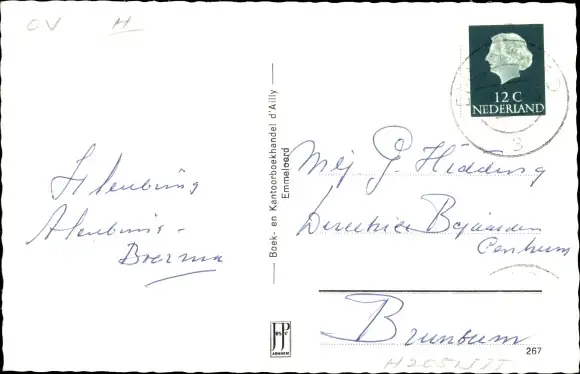 OV H
12 C
NEDERLAND
3
Boek- en Kantoorboekhandel d'Ailly
Emmeloord
Mej G. Hidding
Directrice Bejaarden
Centrum
Brunsum
Boerma
JosPé
ARNHEM
267